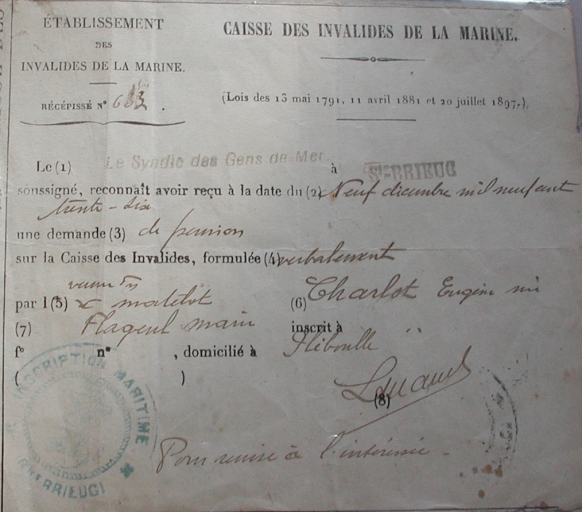 ÉTABLISSEMENT
DES
INVALIDES DE LA MARINE.
RÉCÉPISSÉ N°
CAISSE DES INVALIDES DE LA MARINE.
(Lois des 13 mai 1791, 11 avril 1881 et 20 juillet 1897.)
Le (1) Le Syndic des Gens de Mer à St-BRIEUC
soussigné, reconnaît avoir reçu à la date du (2) Neuf décembre mil neuf cent
trente-six
une demande (3) de pension
sur la Caisse des Invalides, formulée (4) verbalement
veuve
par l (5) matelot (6) Charlot Eugène
(7) Flageul Marie inscrit à
f° n° , domicilié à
( )
(8)
INSCRIPTION MARITIME
St BRIEUC
Pour remise à l'intéressée.